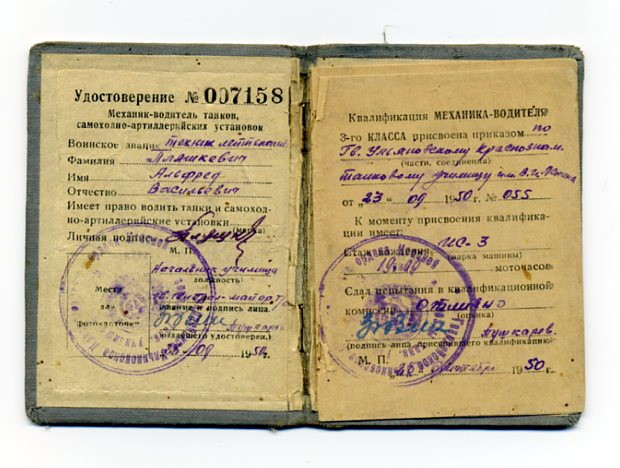 Удостоверение № 007158
Механик-водитель танков,
самоходно-артиллерийских установок
Воинское звание техник лейтенант
Фамилия
Имя Альфред
Отчество Васильевич
Имеет право водить танки и самоход-
но-артиллерийские установки
(марка)
Личная подпись
М. П.
Начальник училища
должность
Место
для
фотокарточки
звание и подпись лица
Пушкарев
выдавшего удостоверен.)
1950г.
Квалификация МЕХАНИКА-ВОДИТЕЛЯ
3-го КЛАССА присвоена приказом по
Гв. Ульяновскому Краснознам.
(части, соединения)
танковому училищу им. В.И. Ленина
от „23 09 1950г. № 055
К моменту присвоения квалифика-
ции имеет:
ИС-3
Стаж вождения (марка машины)
моточасов
Сдал испытания в квалификационной
комиссии отлично
(оценка)
Пушкарев
(подпись лица, присвоившего квалификацию)
М. П.
1950 г.